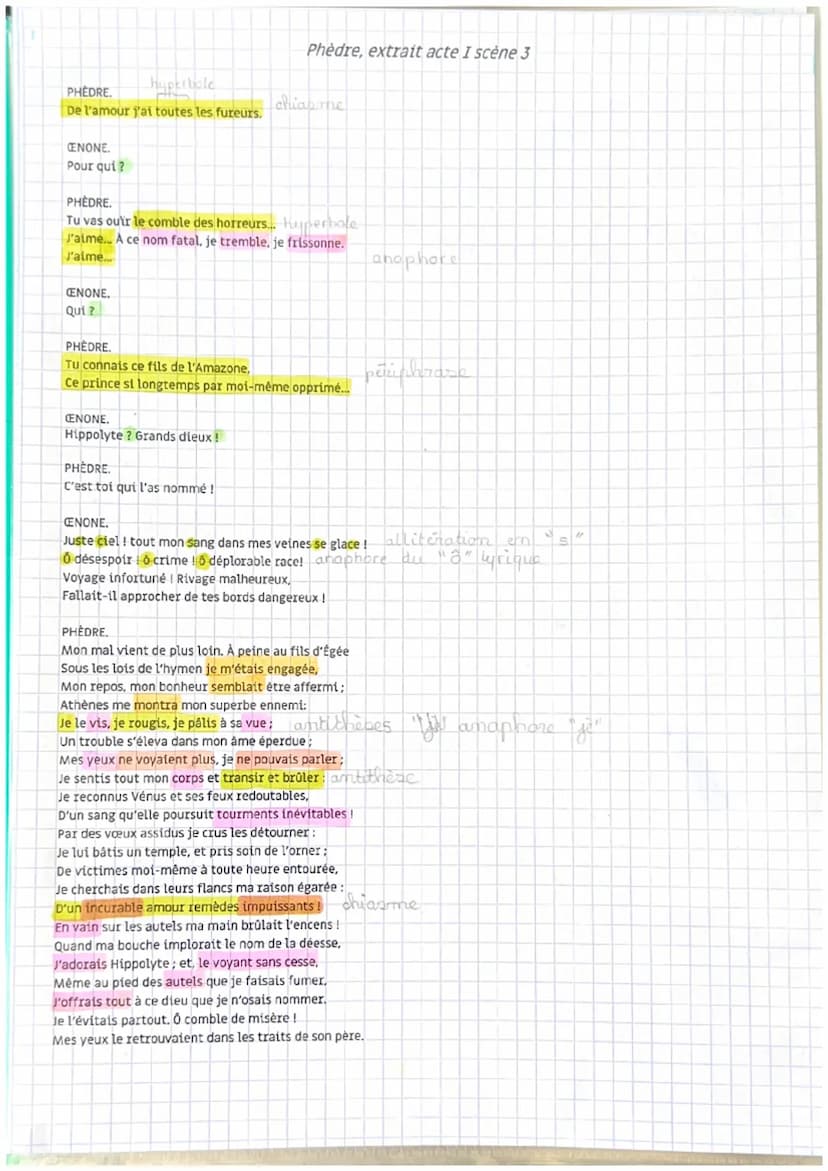 Phèdre, extrait acte I scène 3
hyperbole
PHÈDRE.
De l'amour j'ai toutes les fureurs. chiasme
ŒNONE.
Pour qui ?
PHÈDRE.
Tu vas ouïr le comble des horreurs... hyperbole
J'aime... À ce nom fatal, je tremble, je frissonne.
J'aime... anaphore
ŒNONE.
Qui ?
PHÈDRE.
Tu connais ce fils de l'Amazone, périphrase
Ce prince si longtemps par moi-même opprimé...
ŒNONE.
Hippolyte ? Grands dieux !
PHÈDRE.
C'est toi qui l'as nommé !
ŒNONE.
Juste ciel ! tout mon sang dans mes veines se glace ! allitération en "s"
Ô désespoir ! ô crime ! ô déplorable race! anaphore du "ô" lyrique
Voyage infortuné ! Rivage malheureux,
Fallait-il approcher de tes bords dangereux !
PHÈDRE.
Mon mal vient de plus loin. À peine au fils d'Égée
Sous les lois de l'hymen je m'étais engagée,
Mon repos, mon bonheur semblait être affermi ;
Athènes me montra mon superbe ennemi:
Je le vis, je rougis, je pâlis à sa vue ; antithèses anaphore "je"
Un trouble s'éleva dans mon âme éperdue ;
Mes yeux ne voyaient plus, je ne pouvais parler ;
Je sentis tout mon corps et transir et brûler : antithèse
Je reconnus Vénus et ses feux redoutables,
D'un sang qu'elle poursuit tourments inévitables !
Par des vœux assidus je crus les détourner :
Je lui bâtis un temple, et pris soin de l'orner ;
De victimes moi-même à toute heure entourée,
Je cherchais dans leurs flancs ma raison égarée :
D'un incurable amour remèdes impuissants ! chiasme
En vain sur les autels ma main brûlait l'encens !
Quand ma bouche implorait le nom de la déesse,
J'adorais Hippolyte ; et, le voyant sans cesse,
Même au pied des autels que je faisais fumer,
J'offrais tout à ce dieu que je n'osais nommer.
Je l'évitais partout. Ô comble de misère !
Mes yeux le retrouvaient dans les traits de son père.